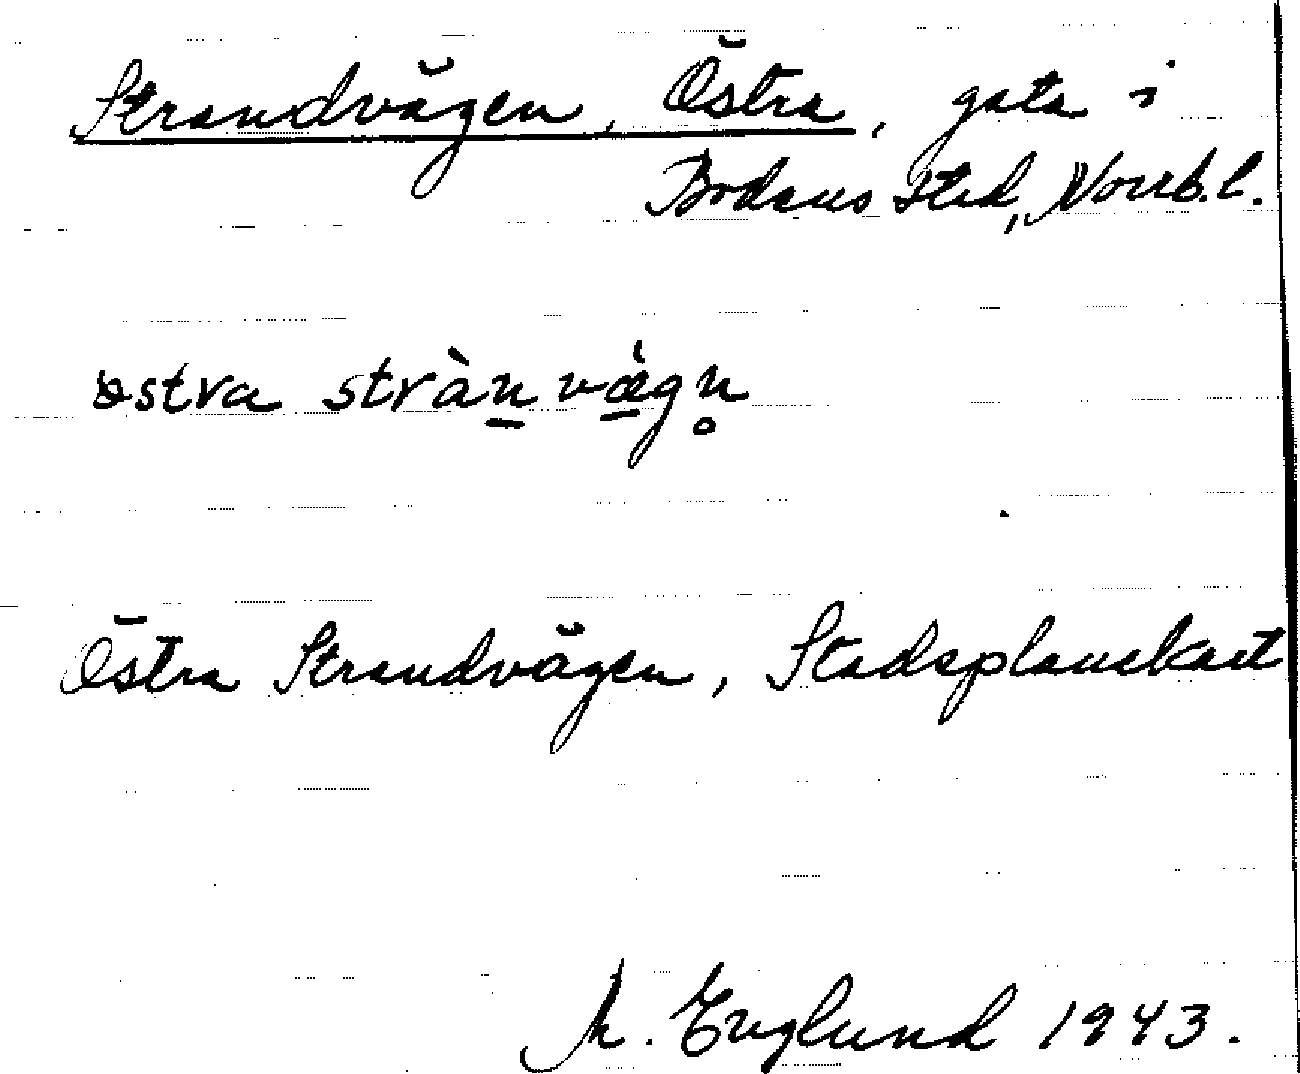 Strandvägen, Östra, gata i
Bodens stad, Norrb. l.
østra stràn̲ væ̲̀gn̥
Östra Strandvägen, Stadsplanekart
M. Englund 1943.